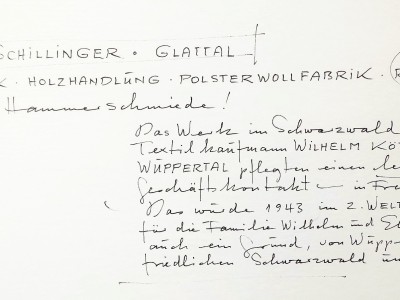 SCHILLINGER · GLATTAL
K · HOLZHANDLUNG · POLSTERWOLLFABRIK ·
Hammerschmiede!
Das Werk im Schwarzwald
Textilkaufmann WILHELM KÖ
WÜPPERTAL pflegten einen le
Geschäftskontakt – in Fre
Das würde 1943 im 2. WELT
für die Familie Wilhelm und El
auch ein Grund, von Wupp
friedlichen Schwarzwald um